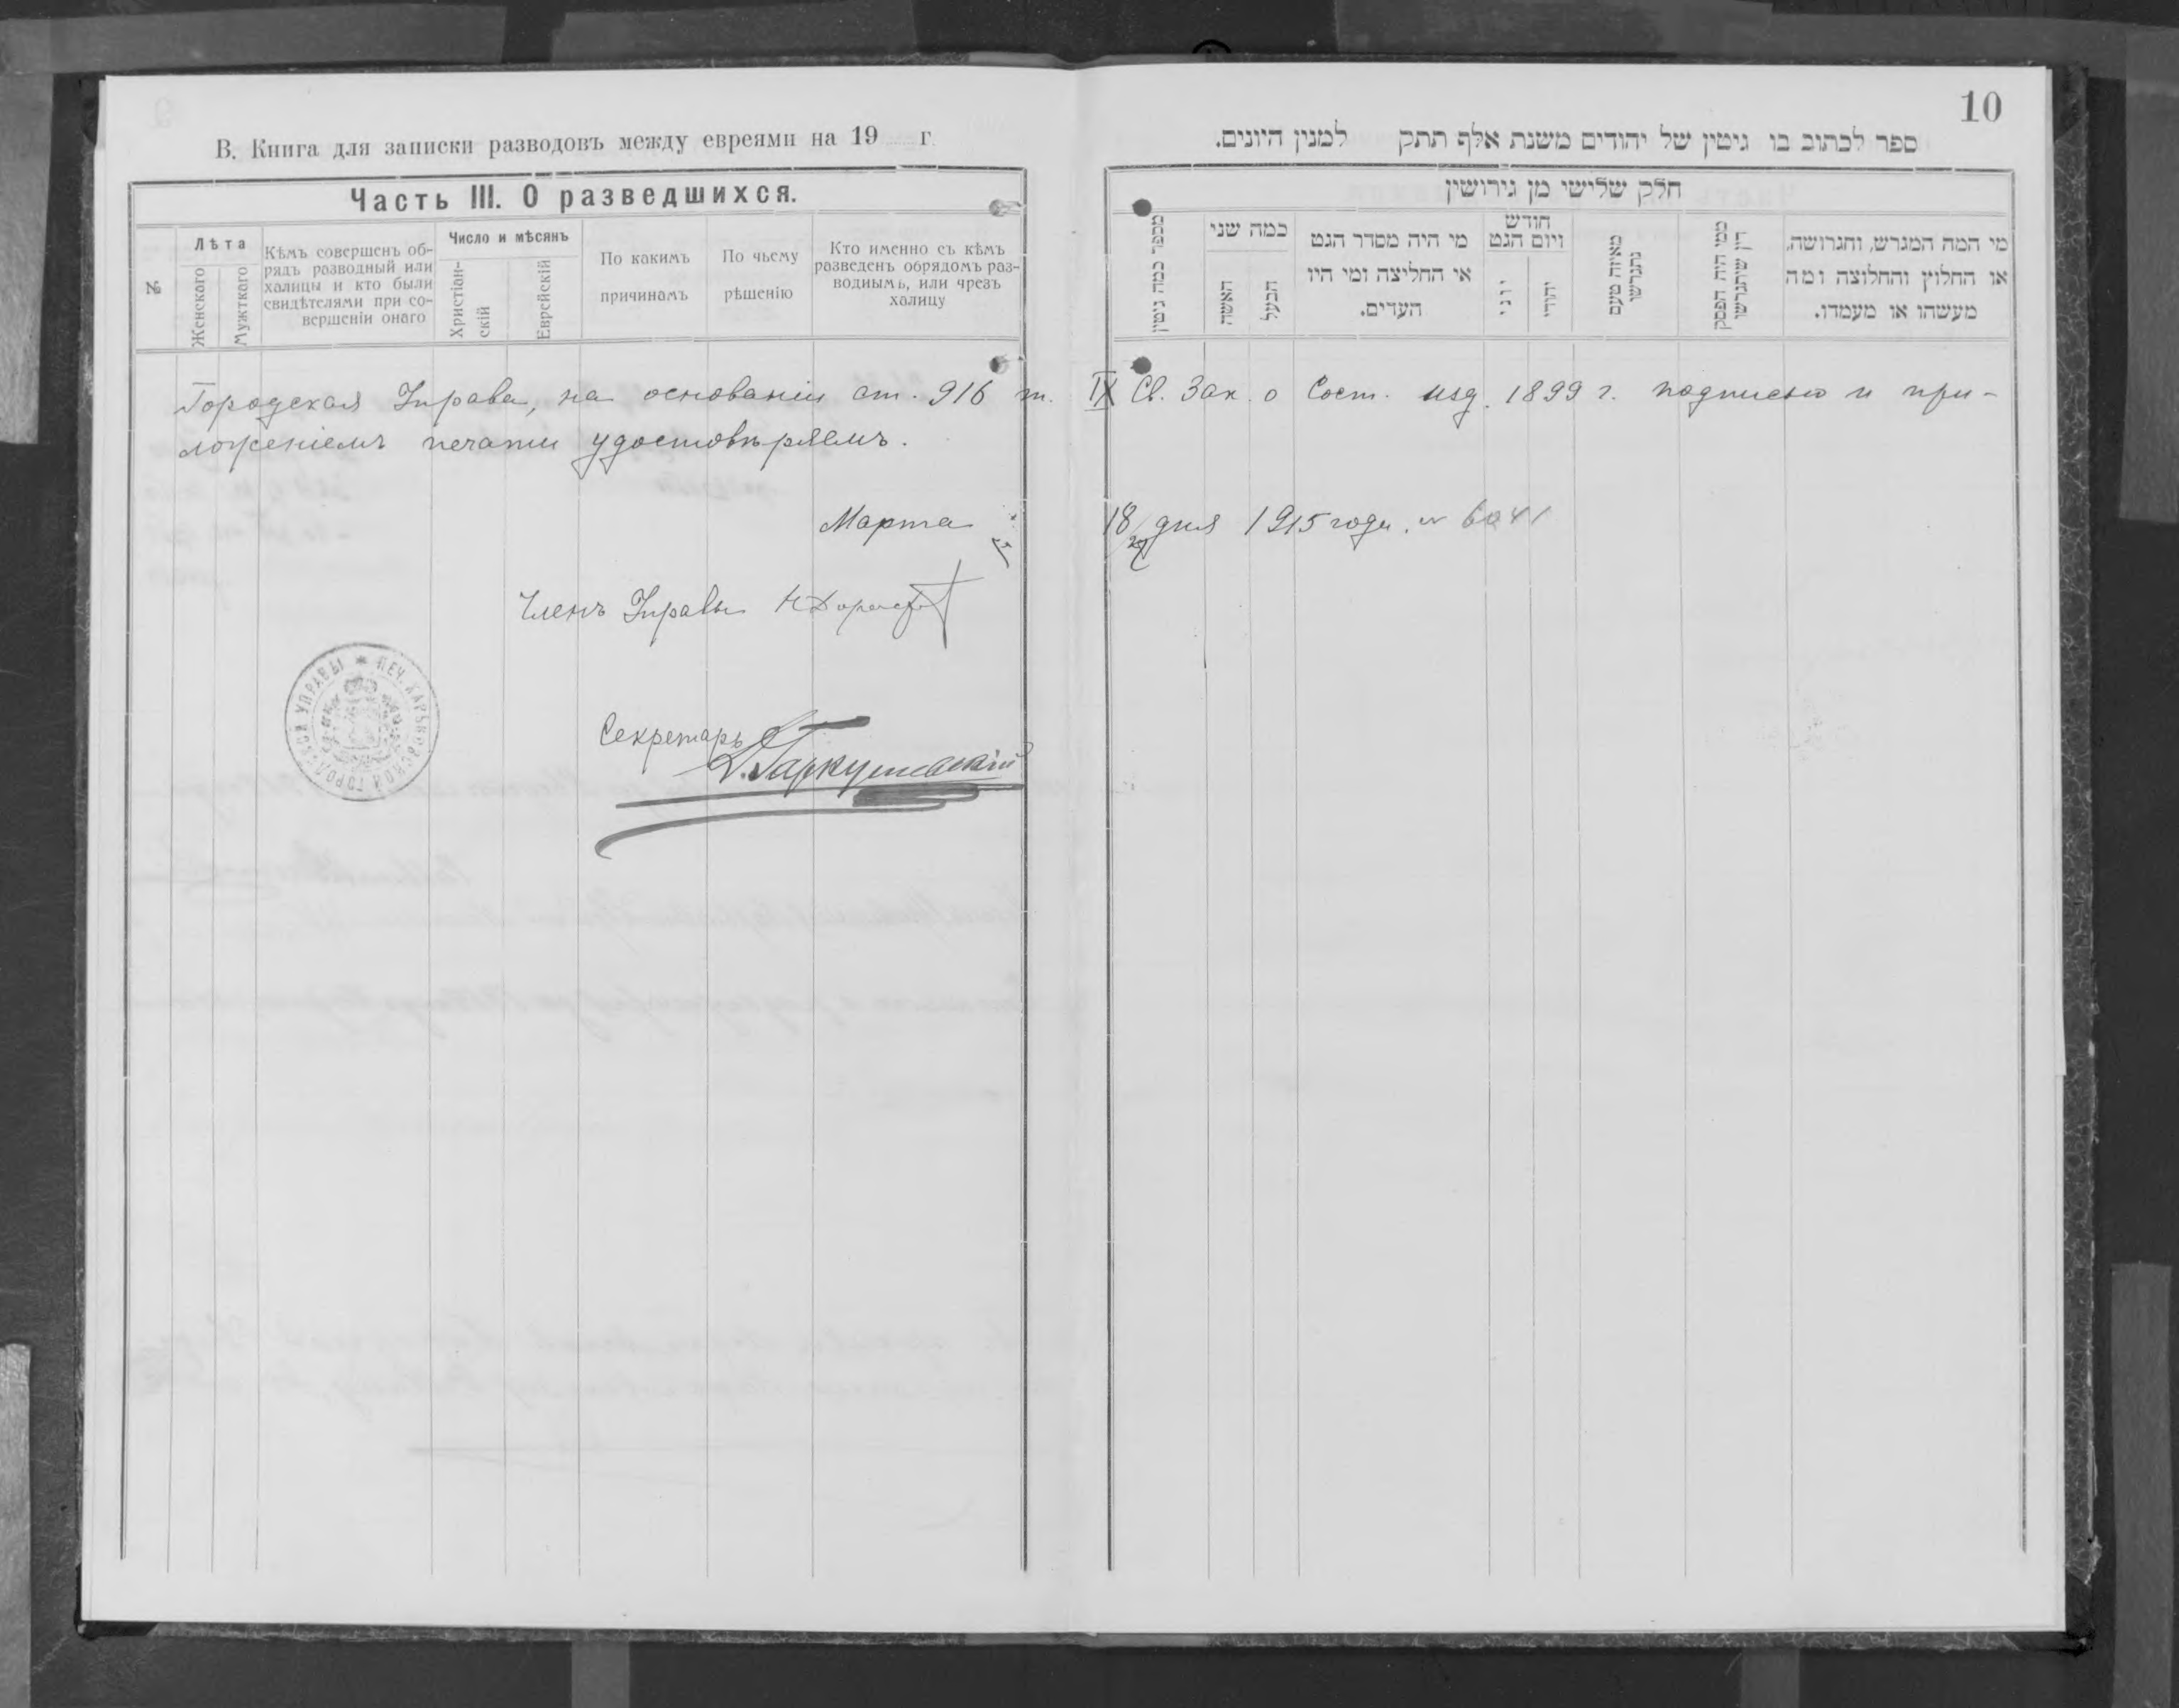 10
В. Книга для записки разводовъ между евреями на 19 г.
Часть III. О разведшихся.
№
Лѣта
Женскаго
Мужткаго
Кѣмъ совершенъ об-
рядъ разводный или
халицы и кто были
свидѣтелями при со-
вершеніи онаго
Число и мѣсянъ
Христіан-
скій
Еврейскій
По какимъ
причинамъ
По чьему
рѣшенію
Кто именно съ кѣмъ
разведенъ обрядомъ раз-
воднымь, или чрезъ
халицу
ספר לכתוב בו גיטין של יהודים משנת אלף תתק למנין היונים.
חלק שלישי מן גירושין
מספר כמה גיטין
כמה שני
האשה
הבעל
מי היה מסדר הגט
או החליצה ומי היו
העדים.
חודש
ויום הגט
יוני
יהודי
מאיזה טעם
נתגרשו
ממי היה הפסק
דין שיתגרשו
מי המה המגרש, והגרושה,
או החלוץ והחלוצה ומה
מעשהו או מעמדו.
Городская Управа, на основаніи ст. 916 т. IX Св. Зак. о Сост. изд. 1899 г. подписью и при-
ложеніемъ печати удостовѣряемъ.
Марта 18 дня 1915 года. № 6041
Членъ Управы
Секретарь
ПЕЧ. ХАРЬКОВСКОЙ ГОРОДСКОЙ УПРАВЫ